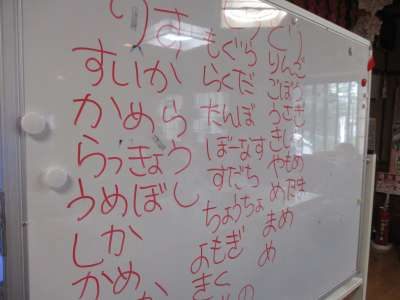 りす
すいか
かめら
らっきょう
うめぼし
しか
かめ
もぐら
らくだ
たんぼ
ぼーなす
すだち
ちょうちょ
よもぎ
きく
りんご
ごぼう
うさぎ
きし
やもめ
めだま
まめ
め